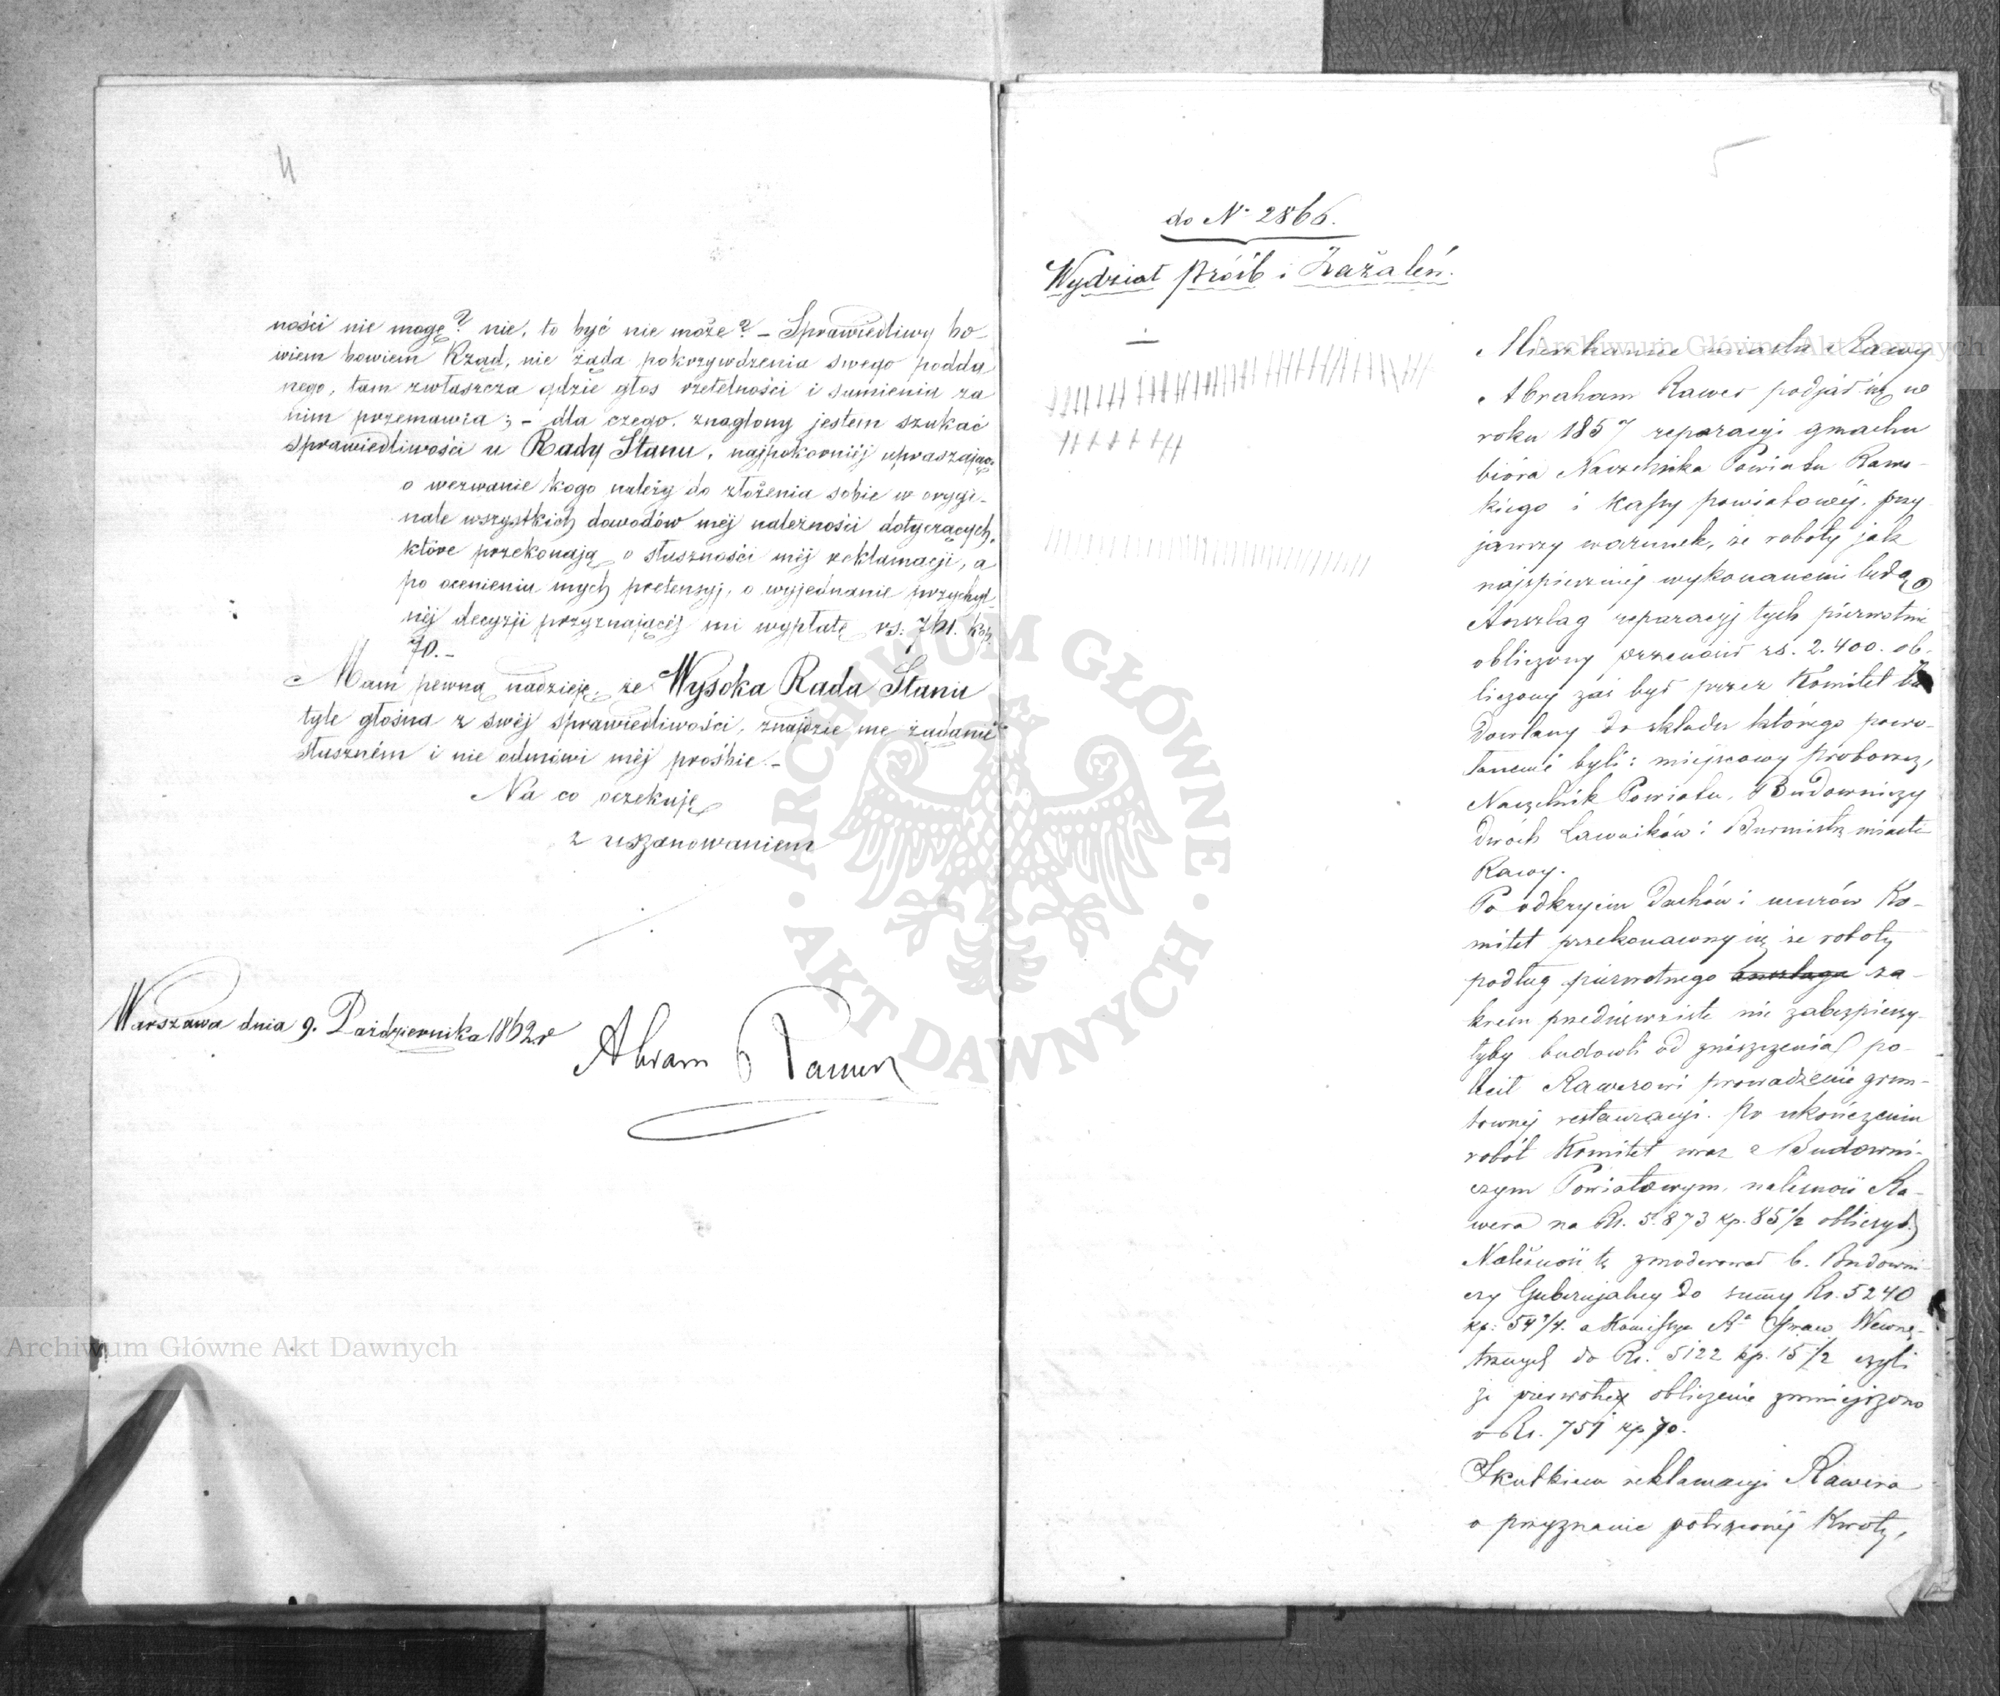 4
ności nie mogę? nie, to być nie może? – Sprawiedliwy bo-
wiem bowiem Rząd, nie żąda pokrzywdzenia swego podda
nego, tam zwłaszcza gdzie głos rzetelności i sumienia za
nim przemawia; – dla czego, znaglony jestem szukać
sprawiedliwości u Rady Stanu, najpokorniéj upraszając
o wezwanie kogo należy do złożenia sobie w orygi-
nale wszystkich dowodów méj należności dotyczących,
które przekonają o słuszności méj reklamacji, a
po ocenieniu mych pretensyj, o wyjednanie przychyl-
néj decyzji przyznającéj mi wypłatę rs: 751. kop
70.–
Mam pewną nadzieję, że Wysoka Rada Stanu
tyle głośna z swéj sprawiedliwości, znajdzie me żądanie
słuszném i nie odmówi méj prośbie.–
Na co oczekuję
z uszanowaniem
Warszawa dnia 9. Października 1862 r
Abram Rawer
5
do N. 2866.
Wydział Próśb i Zażaleń.
Mieszkaniec miasta Rawy
Abraham Rawer podjął się w
roku 1857 reparacyi gmachu
bióra Naczelnika Powiatu Raws-
kiego i Kassy powiatowéj, przy
jąwszy warunek, że roboty jak
najspieszniéj wykonanemi będą
Anszlag reparacyj tych pierwotnie
obliczony przenosił rs. 2.400. ob-
liczony zaś był przez Komitet bu
dowlany do składu którego powo-
łanemi byli: miejscowy proboszcz,
Naczelnik Powiatu, Budowniczy
dwóch Ławników i Burmistrz miasta
Rawy.
Po odkryciu dachów i murów Ko-
mitet przekonawszy się że roboty
podług pierwotnego anszlagu za-
kresu przedsięwzięte nie zabezpieczy-
łyby budowli od zniszczenia po-
lecił Rawerowi prowadzenie grun-
townéj restauracyi. Po ukończeniu
robót Komitet wraz z Budowni-
czym Powiatowym, należność Ra-
wera na Rs. 5.873 kp. 85 1/2 obliczył.
Należność tę zmoderował b. Budowni
czy Gubernjalny do summy Rs. 5240
kp: 54 3/4. a Komissya R. Spraw Wewnę-
trznych do Rs. 5122 kp. 15 1/2 czyli
że pierwotne obliczenie zmniejszono
o Rs. 751 kp 70.
Skutkiem reklamacyi Rawera
o przyznanie potrąconéj Kwoty,
Archiwum Główne Akt Dawnych
Archiwum Główne Akt Dawnych
ARCHIWUM GŁÓWNE · AKT DAWNYCH ·